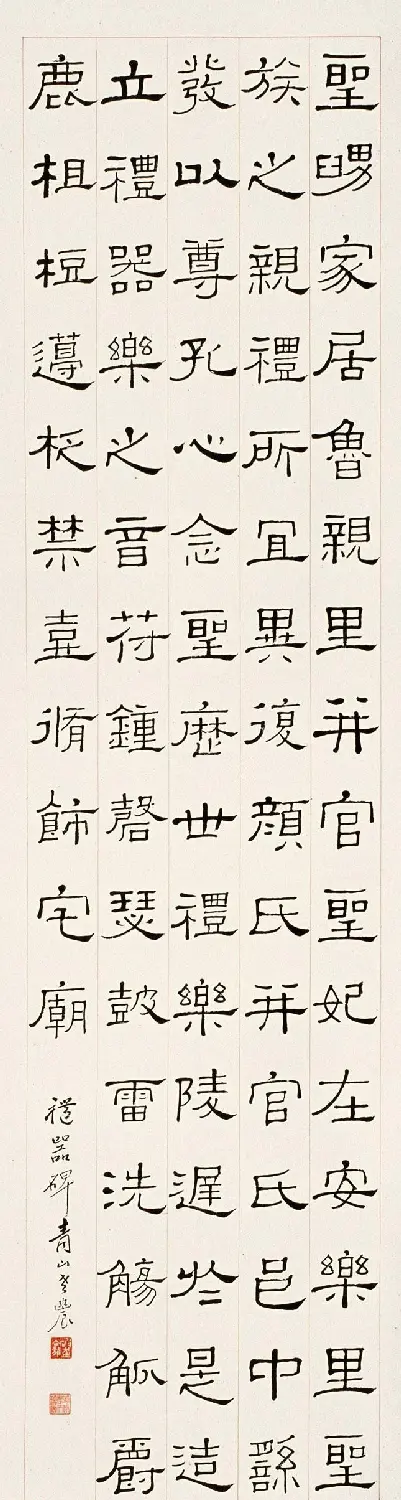 聖舅家居魯親里并官聖妃在安樂里聖
族之親禮所宜異復顏氏并官氏邑中繇
發以尊孔心念聖歷世禮樂陵遲於是造
立禮器樂之音苻鍾磬瑟皷雷洗觴觚爵
鹿柤梪籩柉禁壺脩飾宅廟
禮器碑青山老農